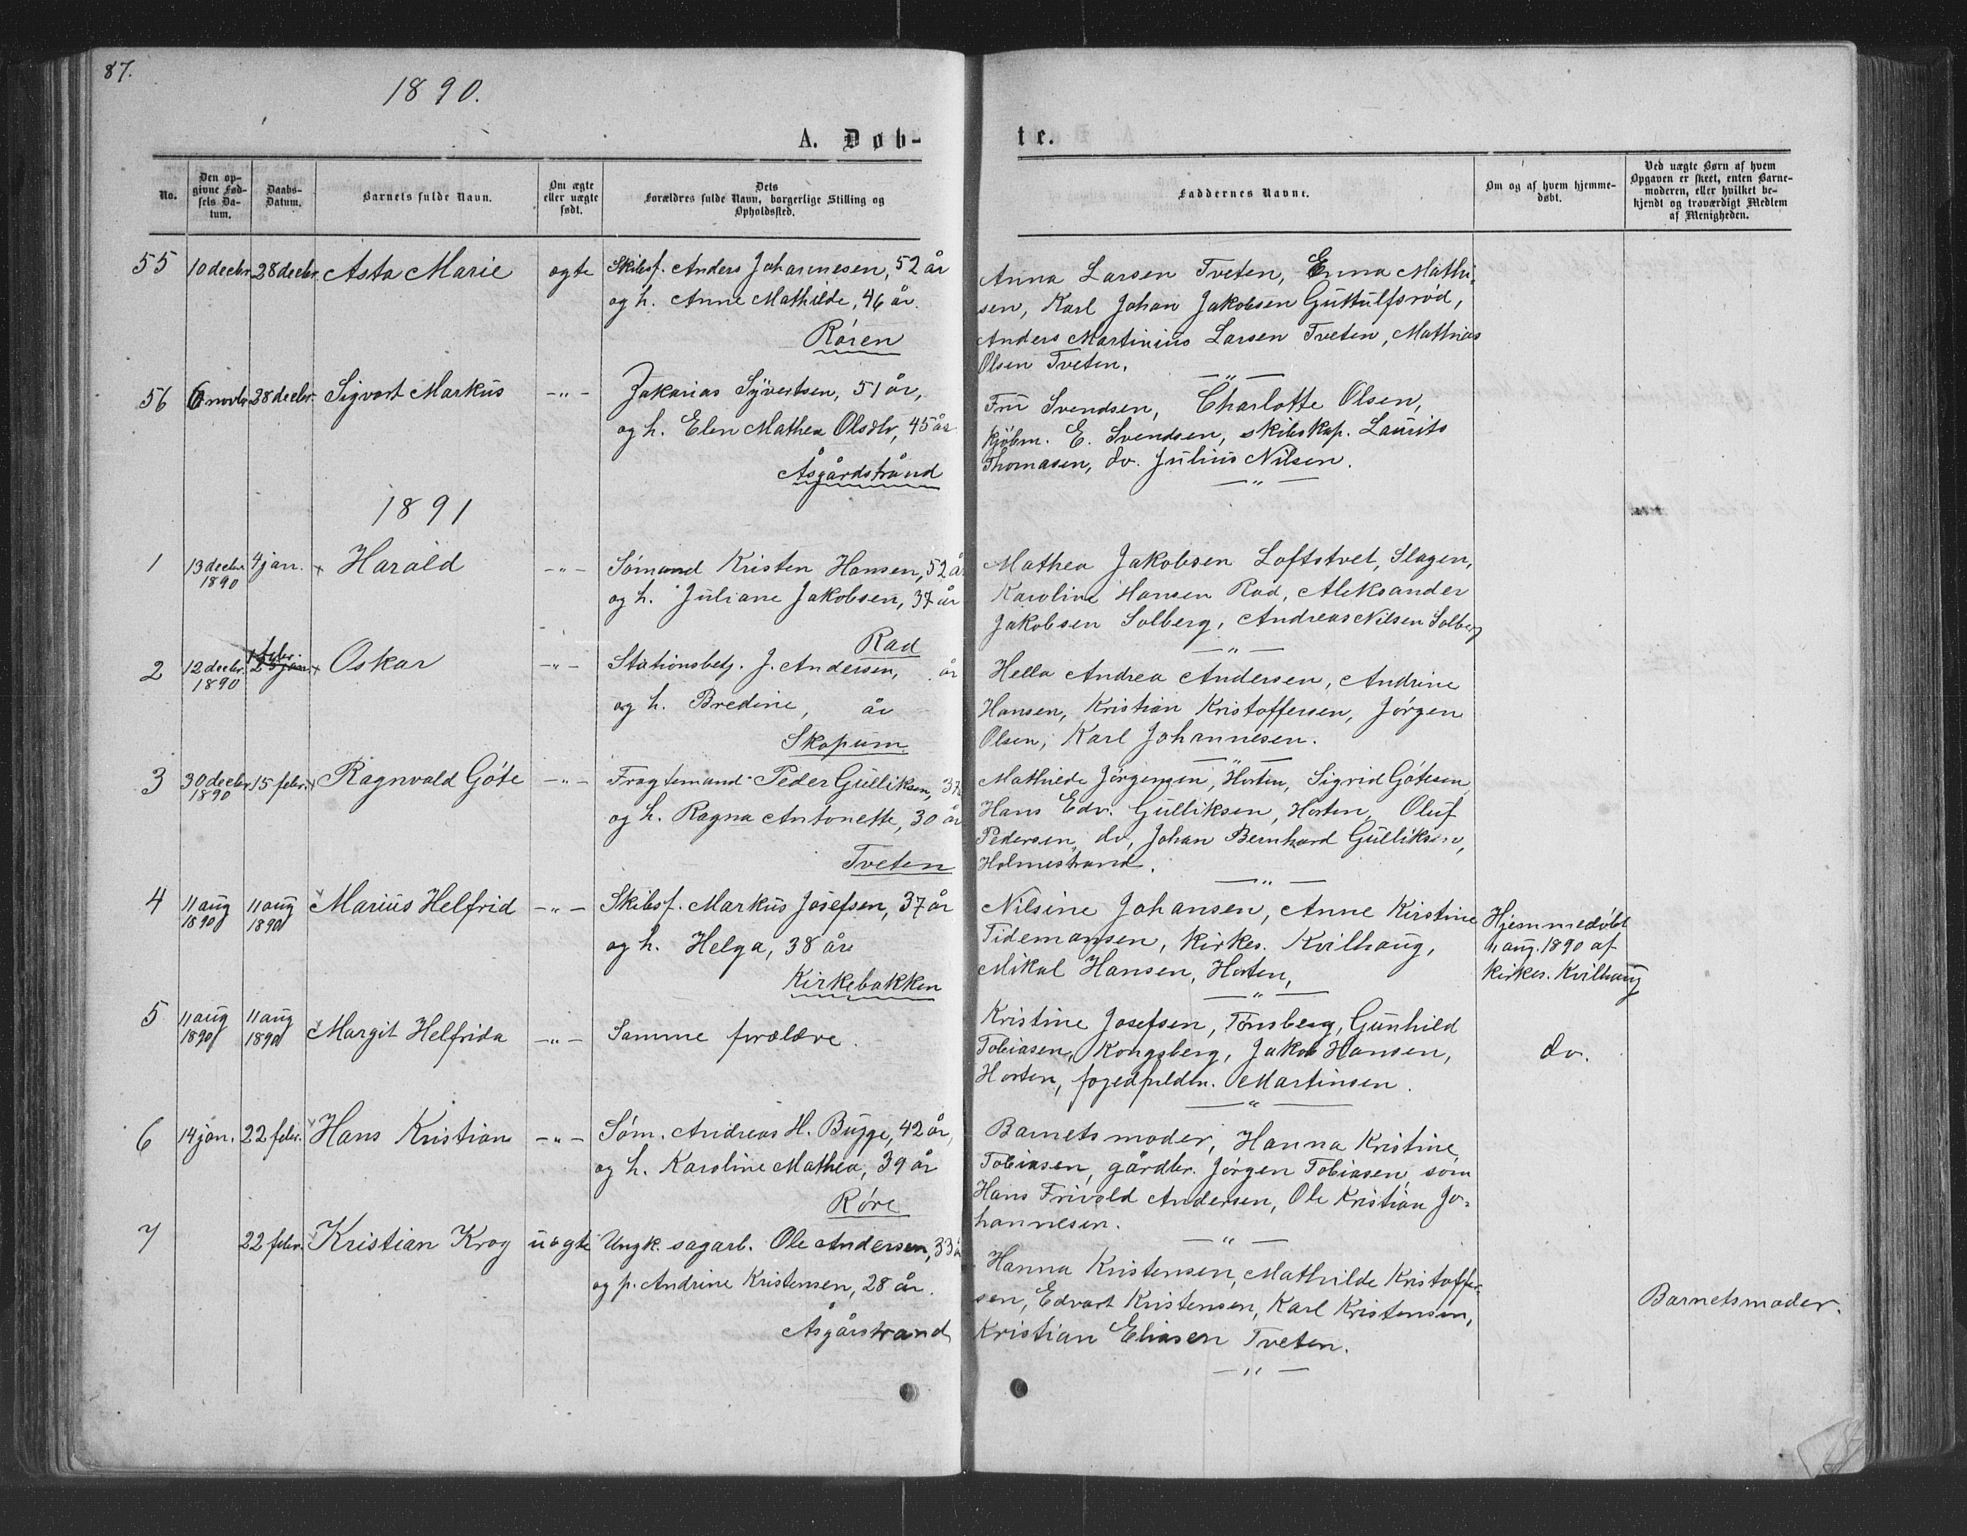 87.
1890.
A. Døb-
te.
No.
Den op-
givne Fød-
sels Da-
tum.
Daabs-
Datum.
Barnets fulde Navn.
Om ægte
eller uægte
født.
Dets
Forældres fulde Navn, borgerlige Stilling og
Opholdssted.
Faddernes Navne.
Om og af hvem hjemme-
døbt.
Ved uægte Børn af hvem
Opgaven er skeet, enten Barne-
moderen, eller hvilket be-
kjendt og troværdigt Medlem
af Menigheden.
55 10 decbr. 28 decbr. Asta Marie ægte Skibsf. Anders Johannesen, 52 år
og h. Anne Mathilde, 46 år.
Røren
Anna Larsen Tveten, Emma Mathi-
sen, Karl Johan Jakobsen Guttulfsrød,
Anders Martinius Larsen Tveten, Mathias
Olsen Tveten.
— " —
56 6 novbr 28 decbr. Sigvart Markus - " - Zakarias Syvertsen, 51 år,
og h. Elen Mathea Olsdtr, 45 år
Åsgårdstrånd
Fru Svendsen, Charlotte Olsen,
kjøbm. E. Svendsen, skibskap. Laurits
Thomasen, do. Julius Nilsen.
— " —
1891
1 13 decbr. 4 jan. x Harald - " - Sømand Kristen Hansen, 52 år
1890
og h. Juliane Jakobsen, 37 år
Rad
Mathea Jakobsen Loftstvet, Slagen,
Karoline Hansen Rad, Aleksander
Jakobsen Solberg, Andreas Nilsen Solberg
— " —
2 12 decbr. 1 febr. 25 jan. x Oskar - " - Stationsbetj. J. Andersen, år
1890
og h. Bredine, år
Skopum
Hella Andrea Andersen, Andrine
Hansen, Kristian Kristoffersen, Jørgen
Olsen, Karl Johannesen.
— " —
3 30 decbr. 15 febr. x Ragnvald Göte - " - Fragtemand Peder Gulliksen, 37
1890
og h. Ragna Antonette, 30 år
Tveten
Mathilde Jørgensen, Horten, Sigrid Götesen,
Hans Edv. Gulliksen, Horten, Oluf
Pedersen, do, Johan Bernhard Gulliksen,
Holmestrand.
— " —
4 11 aug 11 aug Marius Helfrid - " - Skibsf. Markus Josefsen, 37 år
1890 1890
og h. Helga, 38 år
Kirkebakken
Nilsine Johansen, Anne Kirstine
Tidemansen, kirkes. Kvilhaug,
Mikal Hansen, Horten,
— " —
Hjemmedøbt
11 aug. 1890 af
kirkes. Kvilhaug
5 11 aug 11 aug Margit Helfrida - " - Samme forældre.
1890 1890
Kristine Josefsen, Tønsberg, Gunhild
Tobiasen, Kongsberg, Jakob Hansen,
Horten, fogedfuldm. Martinsen.
— " —
do.
6 14 jan. 22 febr. Hans Kristian - " - Søm. Andreas H. Bugge, 42 år,
og h. Karoline Mathea, 39 år
Røre
Barnets moder, Hanna Kristine
Tobiasen, gårdbr. Jørgen Tobiasen, søm
Hans Frivold Andersen, Ole Kristian Jo-
hannesen.
— " —
7 22 febr. Kristian Krog uægte Ungk. sagarb. Ole Andersen, 33 år
og p. Andrine Kristensen, 28 år.
Åsgårstrand
Hanna Kristensen, Mathilde Kristoffer-
sen, Edvart Kristensen, Karl Kristensen,
Kristian Eliasen Tveten.
— " —
Barnetsmoder.